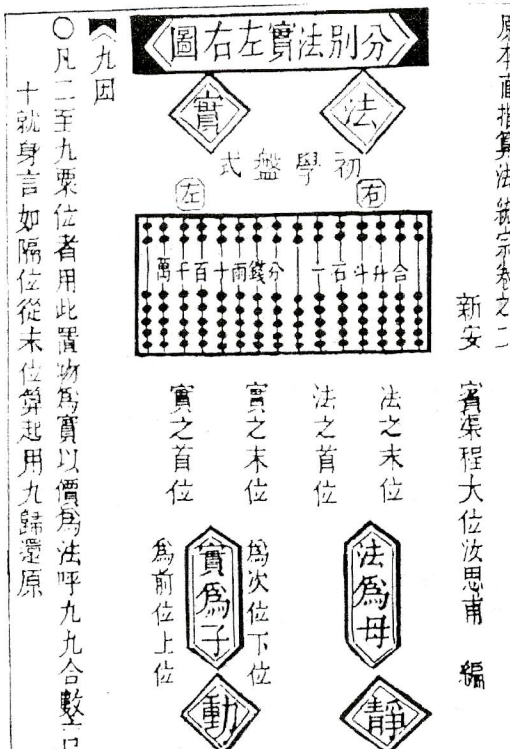 原本直指算法統宗卷之二
新安 賓渠程大位汝思甫 編
分別法實左右圖
法
實
初學盤式
右
左
萬千百十兩錢分 一石斗升合
法之末位
法之首位
實之末位
實之首位
法為母
靜
為次位下位
實為子
動
為前位上位
九因
〇凡二至九 位者用此置物為實以價為法呼九九合數言
十就身言如隔位從末位算起用九歸還原